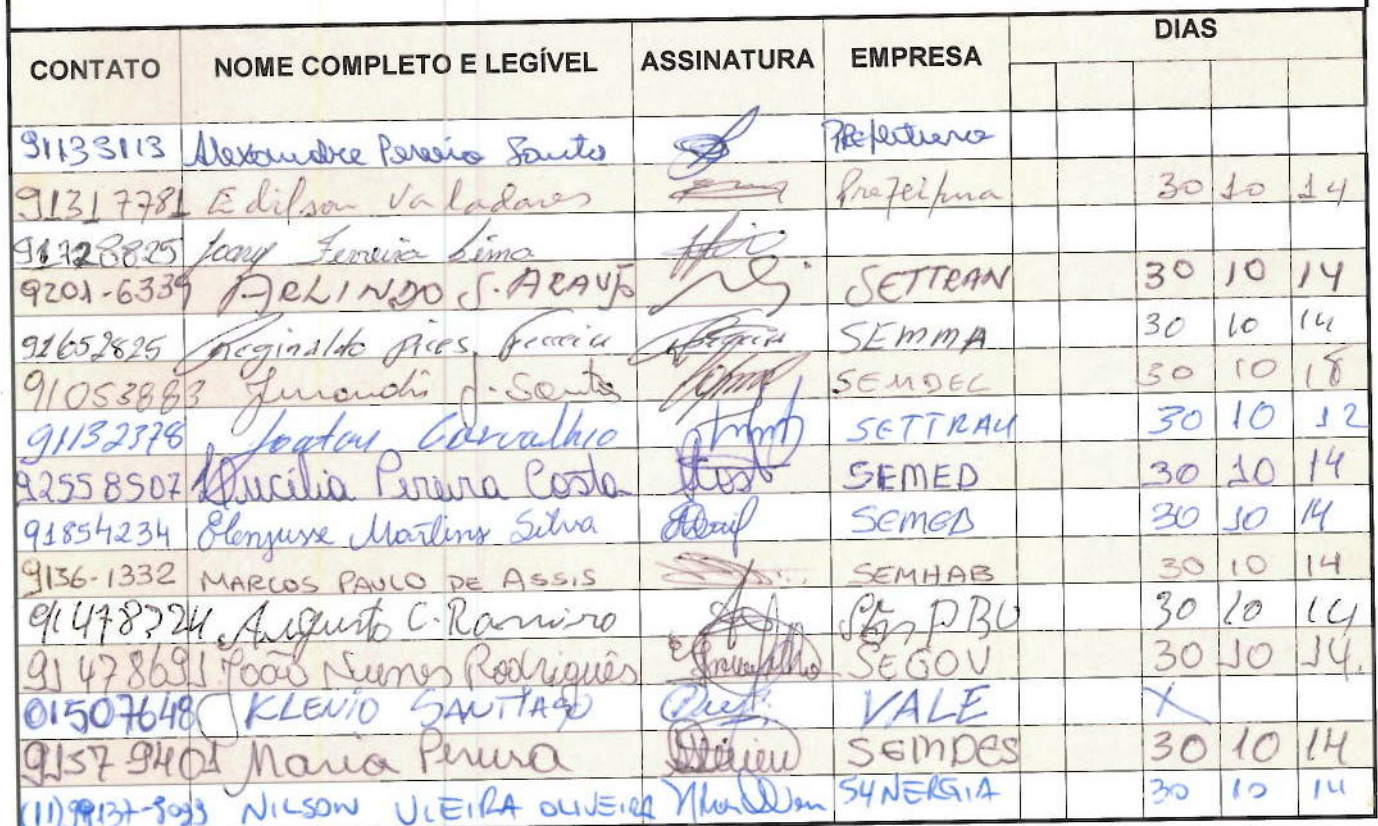 DIAS
CONTATO NOME COMPLETO E LEGÍVEL ASSINATURA EMPRESA
91133113 Alexandre Pereira Santos Prefeitura
91317781 Edilson Valadares Prefeitura 30 10 14
91728825 Ferreira Lima
9201-6339 ARLINDO S. ARAUJO SETTRAN 30 10 14
91652825 Reginaldo Pires Ferreira SEMMA 30 10 14
91053883 Jurandi J. Santos SEMDEC 30 10 18
91132378 Carvalho SETTRAN 30 10 12
92558507 Pereira Costa SEMED 30 10 14
91854234 Martins Silva SEMED 30 10 14
9136-1332 MARCOS PAULO DE ASSIS SEMHAB 30 10 14
Augusto C. Ramiro 30 10 14
91478691 João Nunes Rodrigues SEGOV 30 10 14.
01507648 KLENIO SANTIAGO VALE X
91579401 Maria Pereira SEMDES 30 10 14
NILSON VIEIRA OLIVEIRA SYNERGIA 30 10 14